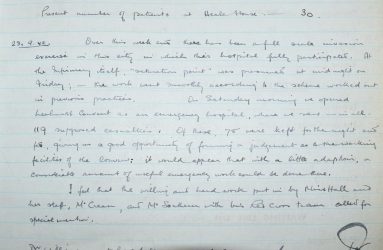 Present number of patients at Beale House — 30.
29.9.42. Over this week end there has been a full scale invasion
exercise in this city in which this hospital fully participated. At
the Infirmary itself, "saturation point" was presumed at midnight on
Friday, — the work went smoothly according to the scheme worked out
in previous practices. On Saturday morning we opened
Convent as an emergency hospital, where we saw in all
119 supposed casualties. Of these, 75 were kept for the night and
fed, giving us a good opportunity of forming a judgement as to the working
facilities of the Convent: it would appear that with a little adaptation, a
considerable amount of useful emergency work could be done there.
I feel that the willing and hard work put in by Miss Hall and
her staff, Mr and Mr with his team called for
special mention.